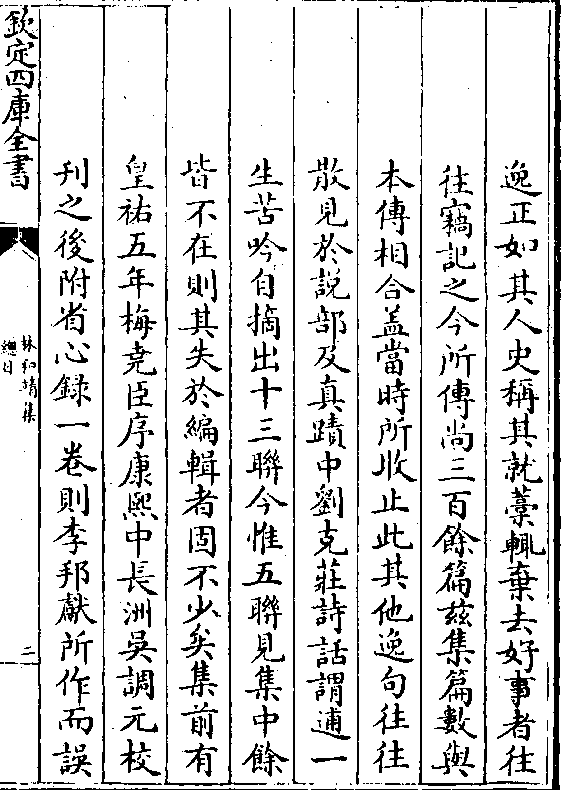 逸正如其人史稱其就藁輒棄去好事者往
往竊記之今所傳尚三百餘篇兹集篇數與
本傳相合盖當時所收止此其他逸句往往
散見於説部及真蹟中劉克莊詩話謂逋一
生苦吟自摘出十三聯今惟五聯見集中餘
皆不在則其失於編輯者固不少矣集前有
皇祐五年梅堯臣序康熙中長洲吳調元校
刋之後附省心録一卷則李邦獻所作而誤
欽定四庫全書
林和靖集
總目
二